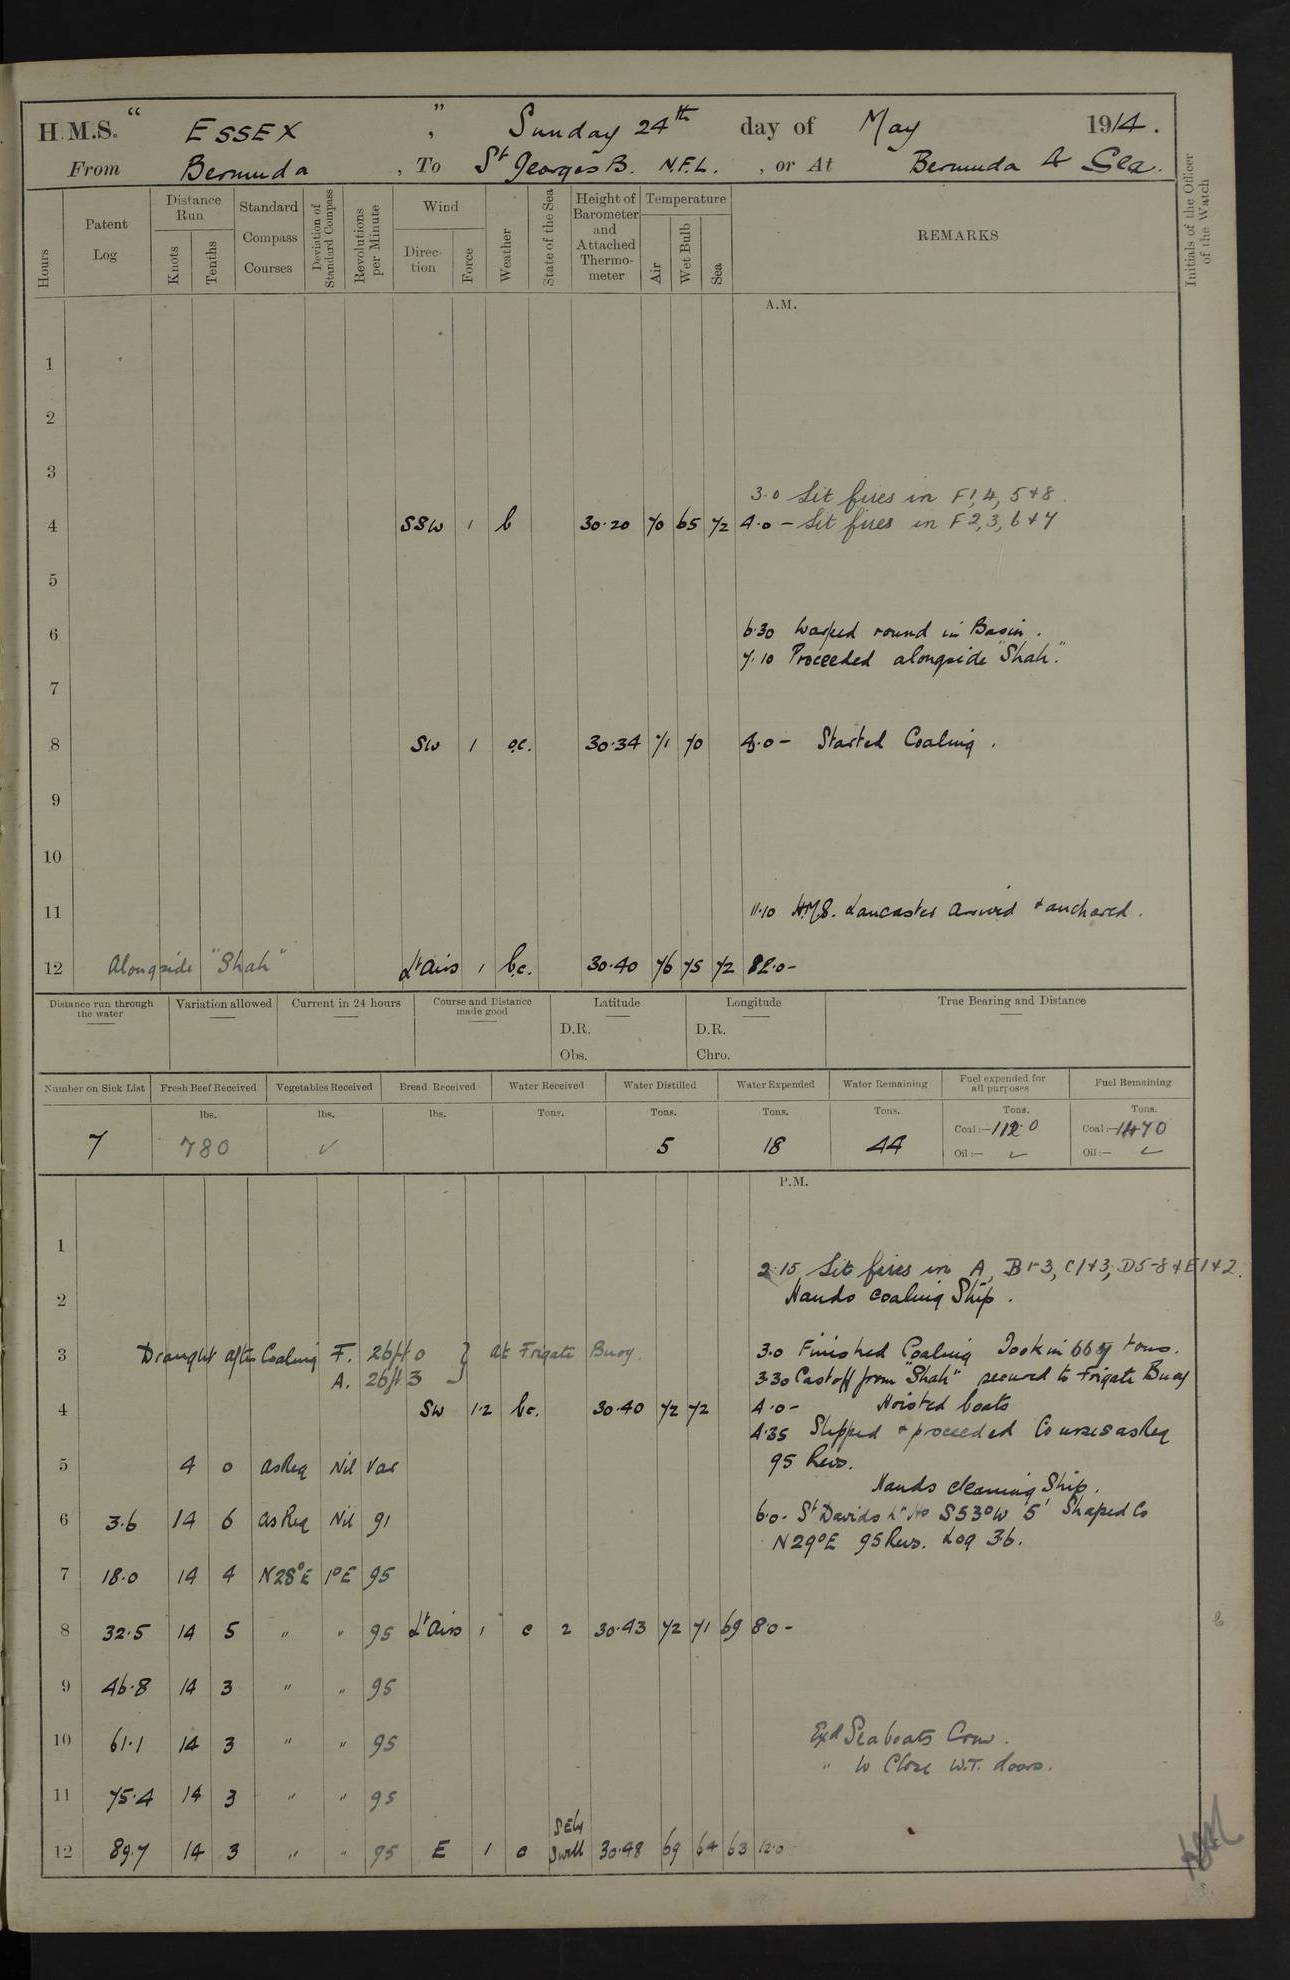 H.M.S. " ESSEX ", Sunday 24th day of May 1914.
From Bermuda , To St Georges B. N.F.L. , or At Bermuda & Sea.
Hours
Patent Log
Distance Run
Knots
Tenths
Standard Compass Courses
Deviation of Standard Compass
Revolutions per Minute
Wind
Direction
Force
Weather
State of the Sea
Height of Barometer and Attached Thermometer
Temperature
Air
Wet Bulb
Sea
REMARKS
Initials of the Officer of the Watch
A.M.
1
2
3
3.0 Lit fires in F1, 4, 5 & 8.
4 SSW 1 b 30.20 70 65 72 4.0 - Lit fires in F 2, 3, 6 & 7
5
6 6.30 Warped round in Basin.
7.10 Proceeded alongside "Shah".
7
8 SW 1 o.c. 30.34 71 70 8.0 - Started Coaling.
9
10
11 11.10 H.M.S. Lancaster arrived & anchored.
12 Alongside "Shah" Lt Airs 1 b.c. 30.40 76 75 72 12.0 -
Distance run through the water
Variation allowed
Current in 24 hours
Course and Distance made good
Latitude
D.R.
Obs.
Longitude
D.R.
Chro.
True Bearing and Distance
Number on Sick List
Fresh Beef Received
Vegetables Received
Bread Received
Water Received
Water Distilled
Water Expended
Water Remaining
Fuel expended for all purposes
Fuel Remaining
lbs. lbs. lbs. Tons. Tons. Tons. Tons. Tons. Tons.
7 780 ✓ 5 18 44 Coal:- 112.0 Coal:- 1470
Oil:- ✓ Oil:- ✓
P.M.
1
2.15 Lit fires in A, B1-3, C1+3, D5-8 & E1+2.
2 Hands coaling Ship.
3 Draught after Coaling F. 26ft 0 } at Frigate Buoy. 3.0 Finished Coaling Took in 667 tons.
A. 26ft 3 3.30 Cast off from "Shah" secured to Frigate Buoy
4 SW 1.2 bc. 30.40 72 72 4.0 - Hoisted boats
4.35 Slipped & proceeded Courses as Req
5 4 0 as Req Nil Var 95 Revs.
Hands cleaning Ship.
6 3.6 14 6 as Req Nil 91 6.0 - St Davids Lt Ho S53°W 5' Shaped Co
N29°E 95 Revs. Log 3.6.
7 18.0 14 4 N28°E 1°E 95
8 32.5 14 5 " " 95 Lt Airs 1 c 2 30.43 72 71 69 8.0 -
9 46.8 14 3 " " 95
10 61.1 14 3 " " 95 Exd Seaboats Crew.
" to Close W.T. doors.
11 75.4 14 3 " " 95
12 89.7 14 3 " " 95 E 1 c SEly Swell 30.48 69 64 63 12.0